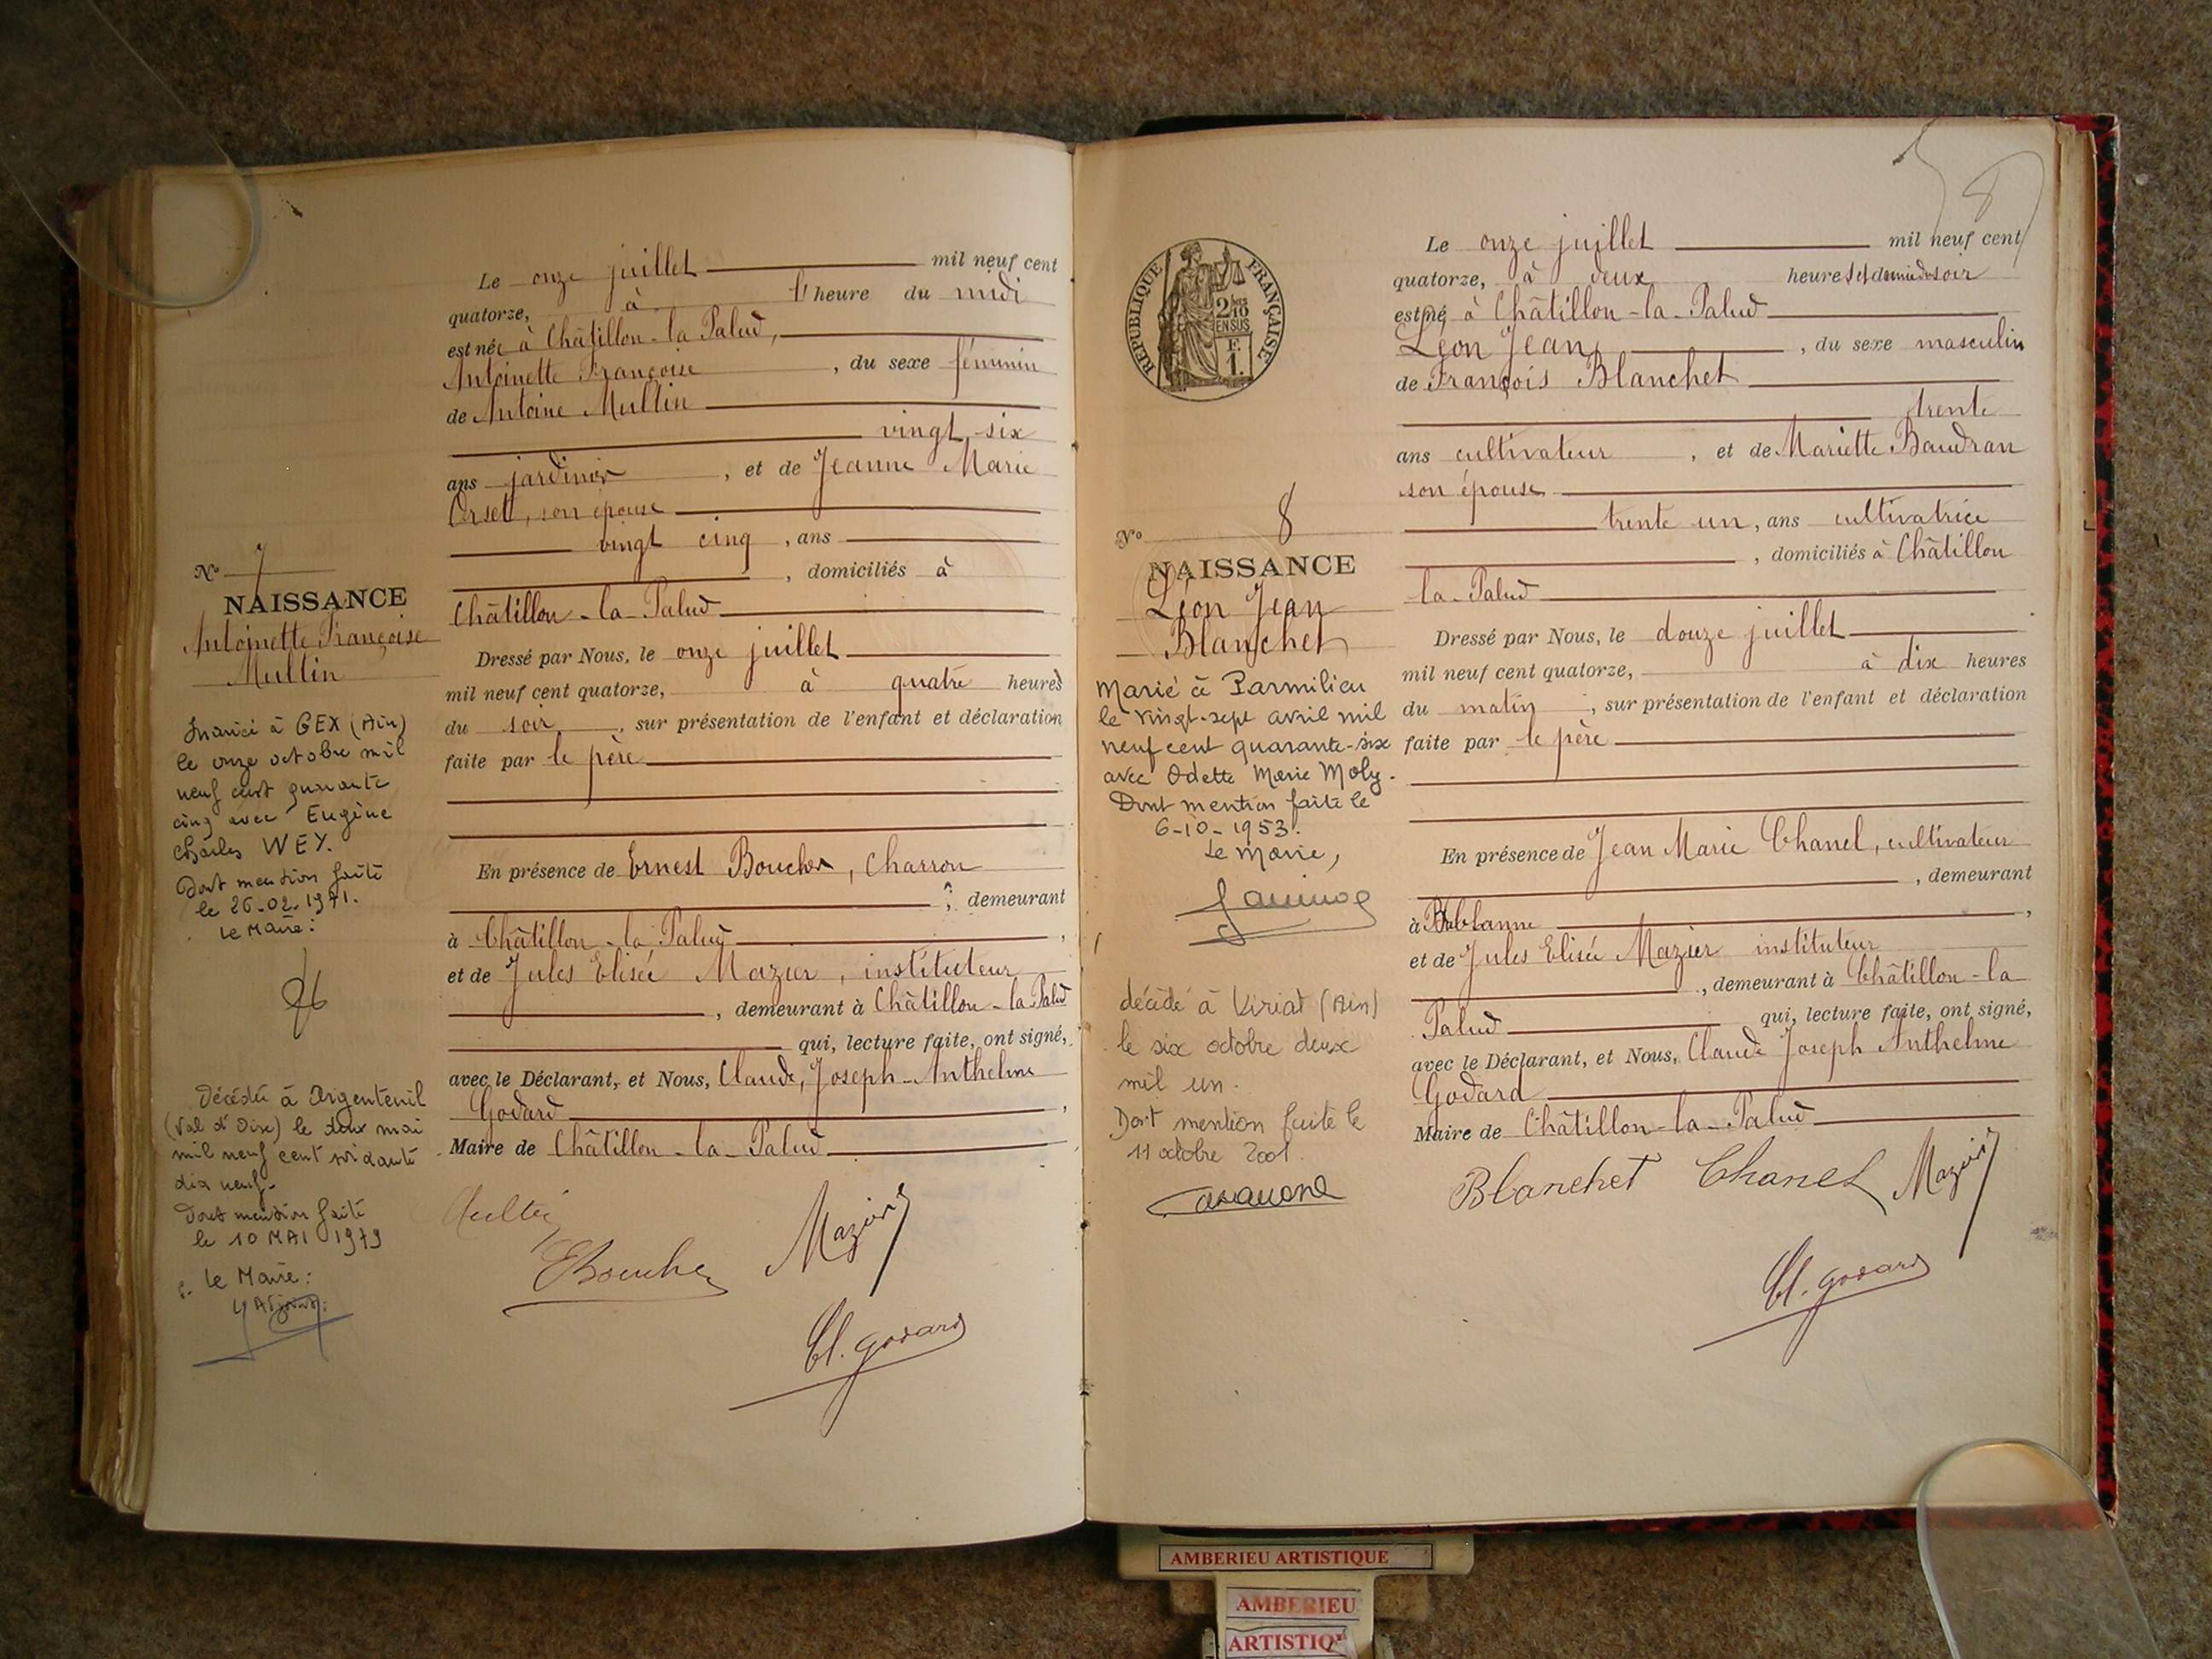 Le onze juillet mil neuf cent
quatorze, à l'heure du midi
est née à Châtillon-la-Palud,
Antoinette Françoise, du sexe féminin
de Antoine Mullin
vingt-six
ans jardinier, et de Jeanne Marie
Orset, son épouse
vingt cinq, ans
, domiciliés à
Châtillon-la-Palud
Dressé par Nous, le onze juillet
mil neuf cent quatorze, à quatre heures
du soir, sur présentation de l'enfant et déclaration
faite par le père
En présence de Ernest Boucher, charron
, demeurant
à Châtillon-la-Palud,
et de Jules Elisée Mazuir, instituteur
, demeurant à Châtillon-la-Palud
qui, lecture faite, ont signé,
avec le Déclarant, et Nous, Claude, Joseph-Anthelme
Godard,
Maire de Châtillon-la-Palud
Mullin
EBoucher
Mazuir
Cl. Godard
N° 7
NAISSANCE
Antoinette Françoise
Mullin
Marié à GEX (Ain)
le onze octobre mil
neuf cent quarante
cinq avec Eugène
Charles WEY.
Dont mention faite
le 26-02-1971.
Le Maire:
Décédée à Argenteuil
(Val d'Oise) le deux mai
mil neuf cent soixante
dix neuf.
Dont mention faite
le 10 MAI 1979
Le Maire:
8
RÉPUBLIQUE FRANÇAISE
2/10
EN SUS
F.
1.
Le onze juillet mil neuf cent
quatorze, à deux heures et demie du soir
est né à Châtillon-la-Palud
Léon Jean, du sexe masculin
de François Blanchet
trente
ans cultivateur, et de Mariette Baudran
son épouse
trente un, ans cultivatrice
, domiciliés à Châtillon
la-Palud
Dressé par Nous, le douze juillet
mil neuf cent quatorze, à dix heures
du matin, sur présentation de l'enfant et déclaration
faite par le père
En présence de Jean Marie Chanel, cultivateur
, demeurant
à Bublanne,
et de Jules Elisée Mazuir instituteur
, demeurant à Châtillon-la
Palud qui, lecture faite, ont signé,
avec le Déclarant, et Nous, Claude Joseph Anthelme
Godard
Maire de Châtillon-la-Palud
Blanchet Chanel Mazuir
Cl. Godard
N° 8
NAISSANCE
Léon Jean
Blanchet
Marié à Parmilieu
le vingt-sept avril mil
neuf cent quarante-six
avec Odette Marie Moly.
Dont mention faite le
6-10-1953.
Le Maire,
décédé à Viriat (Ain)
le six octobre deux
mil un.
Dont mention faite le
11 octobre 2001.
AMBERIEU ARTISTIQUE
AMBERIEU
ARTISTIQ